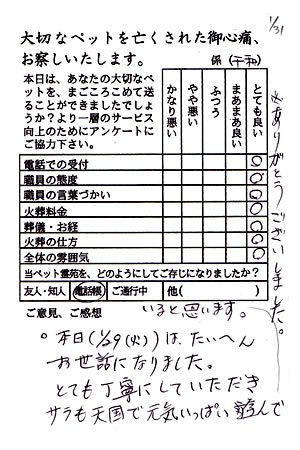 1/31
大切なペットを亡くされた御心痛、
お察しいたします。
係(平和)
本日は、あなたの大切なペッ
トを、まごころこめて送
ることができましたでしょ
うか?より一層のサービス
向上のためにアンケートに
ご協力下さい。
かなり悪い
やや悪い
ふつう
まあまあ良い
とても良い
電話での受付 ○
職員の態度 ○
職員の言葉づかい ○
火葬料金 ○
葬儀・お経 ○
火葬の仕方 ○
全体の雰囲気 ○
当ペット霊苑を、どのようにしてご存じになりましたか?
友人・知人 電話帳 ご通行中 他( )
ご意見、ご感想
。本日(1/29(火))は、たいへん
お世話になりました。
とても丁寧にしていただき
サラも天国で元気いっぱい遊んで
いると思います。
ありがとうございました。